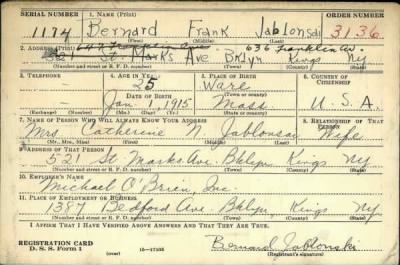 SERIAL NUMBER 1. NAME (Print) ORDER NUMBER
1174 Bernard Frank Jablonski 3136
(First) (Middle) (Last)
2. ADDRESS (Print) 647 Franklin Ave. 636 Franklin Av.
521 St Marks Ave Bklyn Kings NY
(Number and street or R. F. D. number) (Town) (County) (State)
3. TELEPHONE 4. AGE IN YEARS 5. PLACE OF BIRTH 6. COUNTRY OF CITIZENSHIP
25 Ware
DATE OF BIRTH (Town or county)
Jan. 1, 1915 Mass U.S.A.
(Exchange) (Number) (Mo.) (Day) (Yr.) (State or country)
7. NAME OF PERSON WHO WILL ALWAYS KNOW YOUR ADDRESS 8. RELATIONSHIP OF THAT PERSON
Mrs Catherine N. Jablonski Wife
(Mr., Mrs., Miss) (First) (Middle) (Last)
9. ADDRESS OF THAT PERSON
521 St. Marks Ave. Bklyn, Kings NY
(Number and street or R. F. D. number) (Town) (County) (State)
10. EMPLOYER'S NAME
Michael O'Brien, Inc.
11. PLACE OF EMPLOYMENT OR BUSINESS
1387 Bedford Ave. Bklyn, Kings NY
(Number and street or R. F. D. number) (Town) (County) (State)
I AFFIRM THAT I HAVE VERIFIED ABOVE ANSWERS AND THAT THEY ARE TRUE.
REGISTRATION CARD
D. S. S. Form 1 (over) 16-17105 Bernard Jablonski
(Registrant's signature)